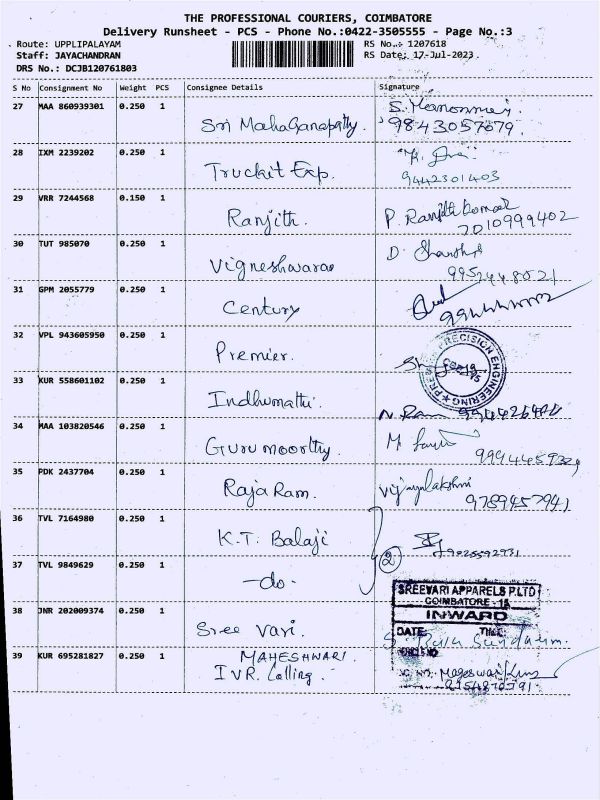 THE PROFESSIONAL COURIERS, COIMBATORE
Delivery Runsheet - PCS - Phone No.:0422-3505555 - Page No.:3
Route: UPPLIPALAYAM RS No.: 1207618
Staff: JAYACHANDRAN RS Date: 17-Jul-2023
DRS No.: DCJB120761803
S No Consignment No Weight PCS Consignee Details Signature
27 MAA 860939301 0.250 1
Sri MahaGanapathy. 9843057679
28 IXM 2239202 0.250 1
Truckit Exp. 9442301403
29 VRR 7244568 0.150 1
Ranjith. P. Ranjith Kumar
7010999402
30 TUT 985070 0.250 1
Vigneshwaraa D.
31 GPM 2055779 0.250 1
Century
32 VPL 943605950 0.250 1
Premier. PRECISION ENGINEERING
33 KUR 558601102 0.250 1
Indhumathi.
34 MAA 103820546 0.250 1
Guru moorthy. M
35 PDK 2437704 0.250 1
Raja Ram. Vijayalakshmi
9789457941
36 TVL 7164980 0.250 1
K.T. Balaji
37 TVL 9849629 0.250 1 2
-do-
SREEVARI APPARELS P.LTD
COIMBATORE - 15
38 JNR 202009374 0.250 1 INWARD
Sree Vari. DATE: TIME:
39 KUR 695281827 0.250 1 MAHESHWARI.
IVR. Calling.